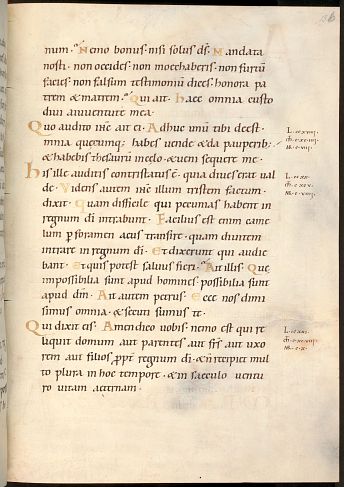 num. Nemo bonus nisi solus ds. Mandata
nosti. non occides. non moechaberis. non furtū
facies. non falsum testimoniū dices. honora pa
trem & matrem. Qui ait. haec omnia custo
divi a iuventute mea.
Quo audito ihc ait ei. Adhuc unū tibi deest.
omnia quecumq; habes uende & da pauperib;
& habebis thesaurū in celo & ueni sequere me.
his ille auditis contristatus ē. quia diues erat ual
de. Videns autem ihc illum tristem factum.
dixit. quam difficile qui pecunias habent in
regnum di intrabunt. Facilius est enim came
lum p foramen acus transire. quam diuitem
intrare in regnum di. Et dixerunt qui audie
bant. et quis potest saluus fieri. Ait illis. Que
impossibilia sunt apud homines. possibilia sunt
apud dm̄. Ait autem petrus. Ecce nos dimi
simus omnia. & secuti sumus te.
Qui dixit eis. Amen dico uobis. nemo est qui re
liquit domum aut parentes. aut frs̄. aut uxo
rem aut filios. ppt regnum di. & n̄ recipiet mul
to plura in hoc tempore. & in saeculo uentu
ro uitam aeternam.